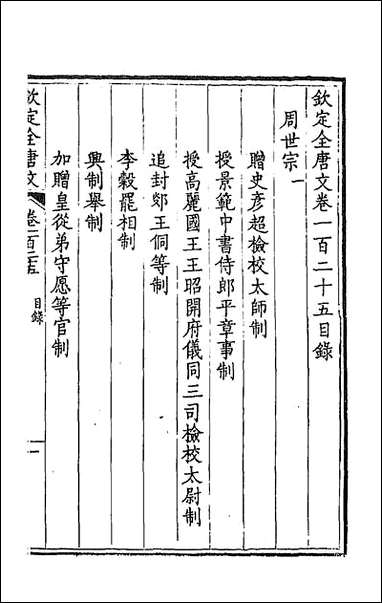 欽定全唐文卷一百二十五目錄
周世宗一
贈史彥超檢校太師制
授景範中書侍郎平章事制
授高麗國王王昭開府儀同三司檢校太尉制
追封郯王侗等制
李穀罷相制
興制舉制
加贈皇從弟守愿等官制
欽定全唐文 卷一百二十五 目錄 一